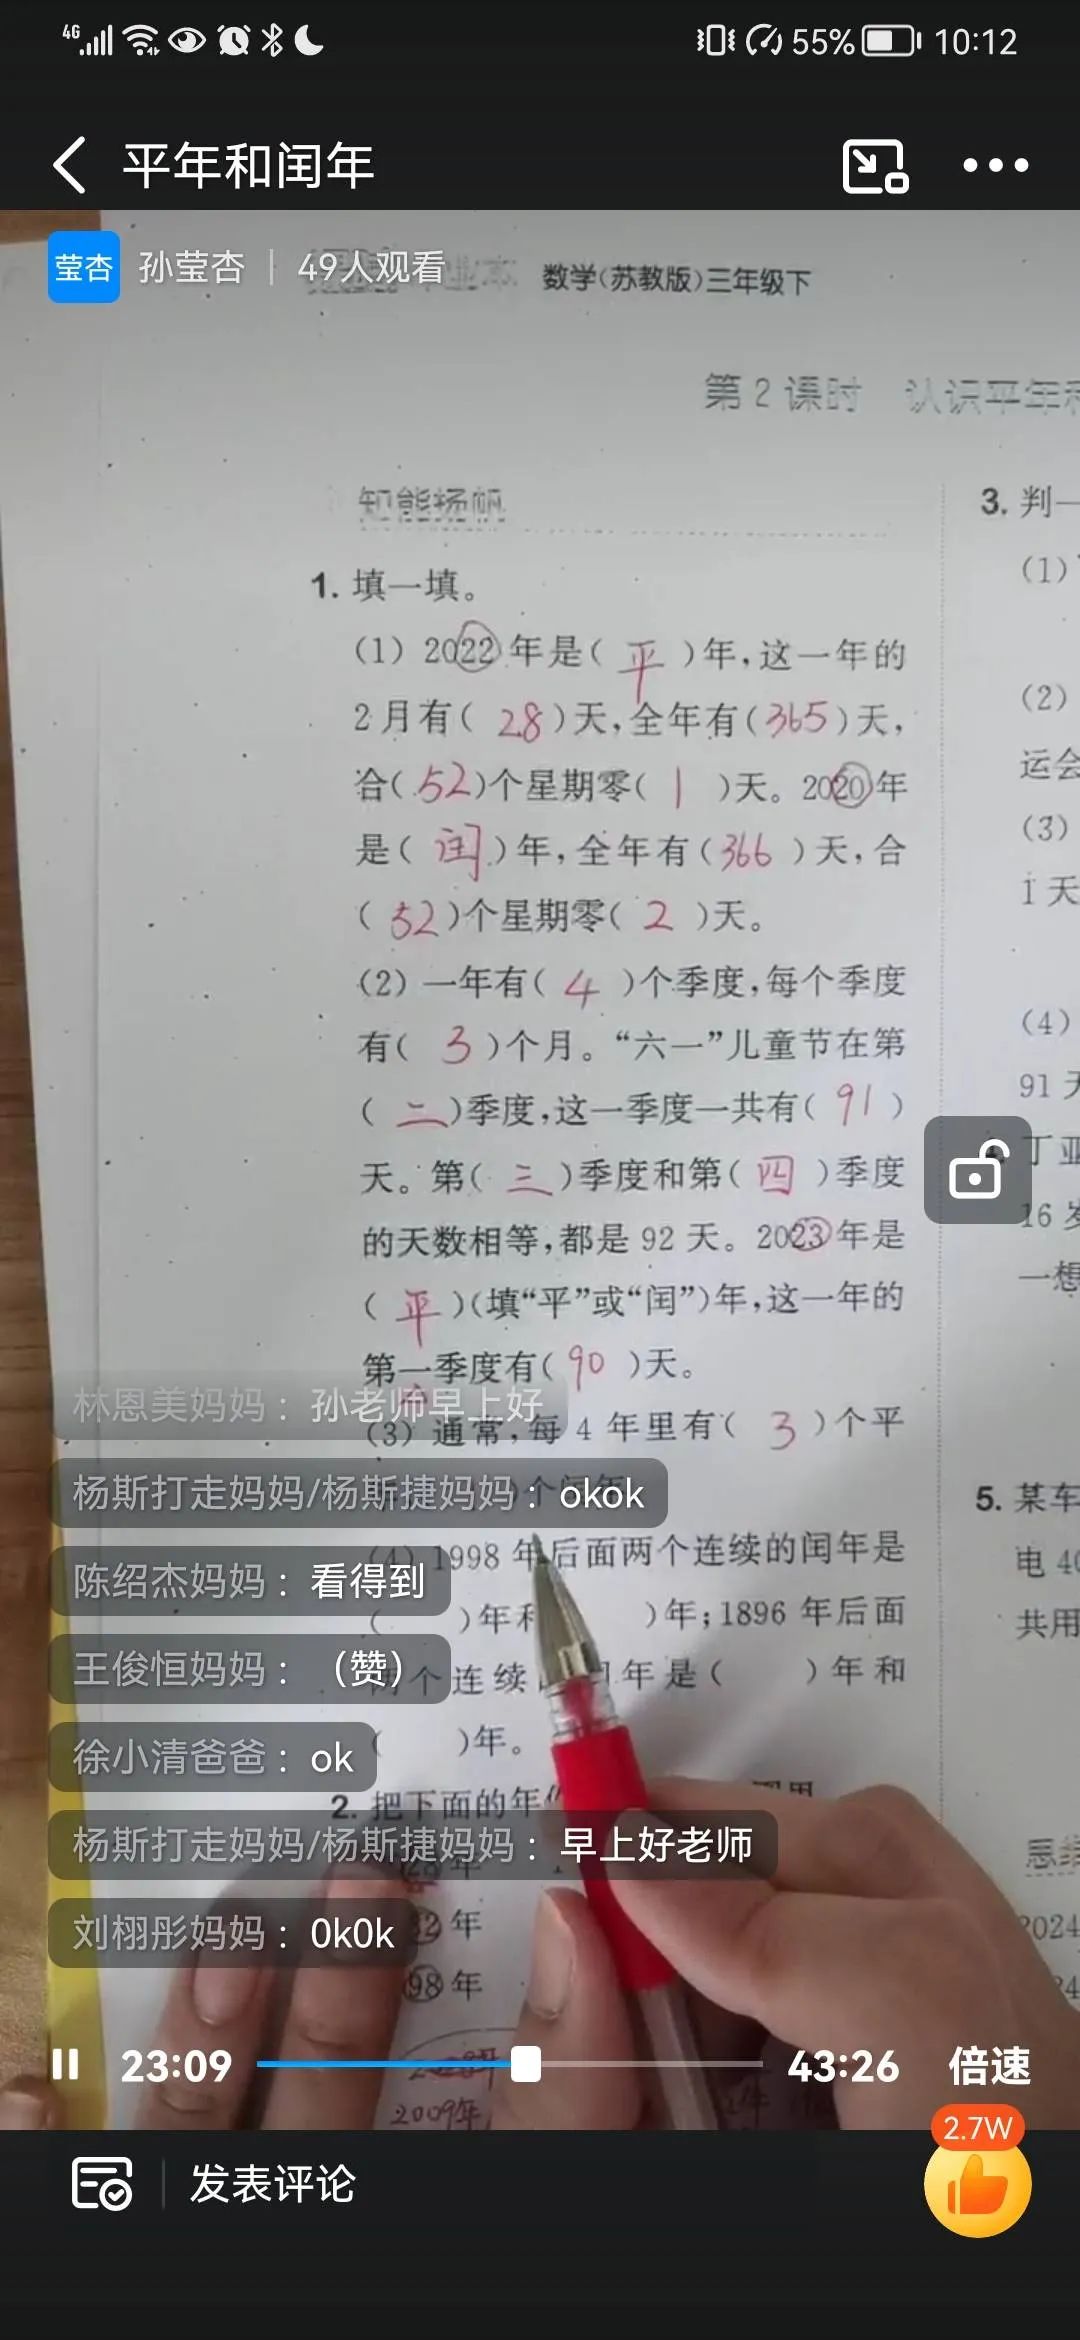 4G 55% 10:12
平年和闰年
莹杏 孙莹杏 | 49人观看
数学(苏教版)三年级下
第2课时 认识平年和
知能扬帆
1. 填一填。
(1) 2022年是( 平 )年,这一年的
2月有( 28 )天,全年有(365)天,
合( 52 )个星期零( 1 )天。2020年
是( 闰 )年,全年有(366 )天,合
( 52 )个星期零( 2 )天。
(2) 一年有( 4 )个季度,每个季度
有( 3 )个月。“六一”儿童节在第
( 二 )季度,这一季度一共有( 91 )
天。第( 三 )季度和第( 四 )季度
的天数相等,都是92天。2023年是
( 平 )(填“平”或“闰”)年,这一年的
第一季度有( 90 )天。
(3) 通常,每4年里有( 3 )个平
)个闰年
(4) 1998年后面两个连续的闰年是
( )年和 )年;1896年后面
两个连续 闰年是( )年和
( )年。
2. 把下面的年
年
年
98年
2009年
3. 判一
(1)
(2)
运会
(3)
1天
(4)
91天
丁亚
16岁
一想
5. 某车
电40
共用
2024
林恩美妈妈: 孙老师早上好
杨斯打走妈妈/杨斯捷妈妈: okok
陈绍杰妈妈: 看得到
王俊恒妈妈: (赞)
徐小清爸爸: ok
杨斯打走妈妈/杨斯捷妈妈: 早上好老师
刘栩彤妈妈: 0k0k
23:09 43:26 倍速
2.7W
发表评论